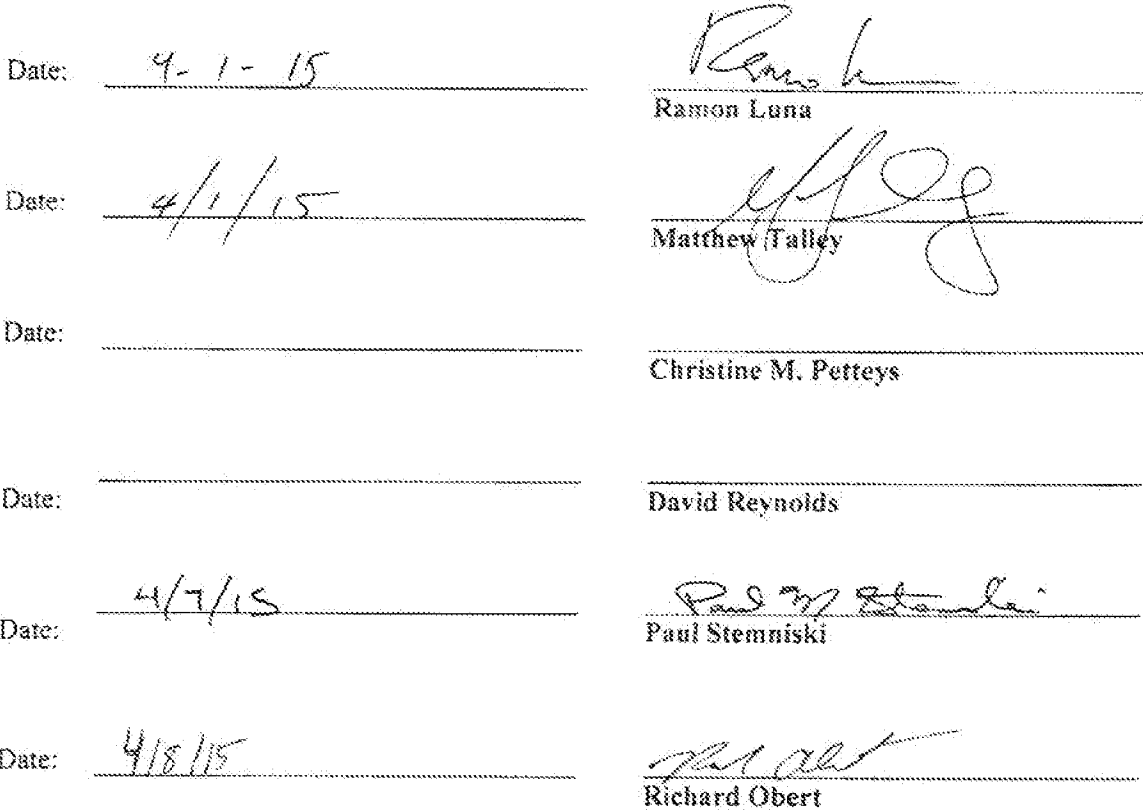 Date: 4-1-15
Ramon Luna
Date: 4/1/15
Matthew Talley
Date:
Christine M. Petteys
Date:
David Reynolds
Date: 4/7/15 Paul M Stemniski
Paul Stemniski
Date: 4/8/15
Richard Obert